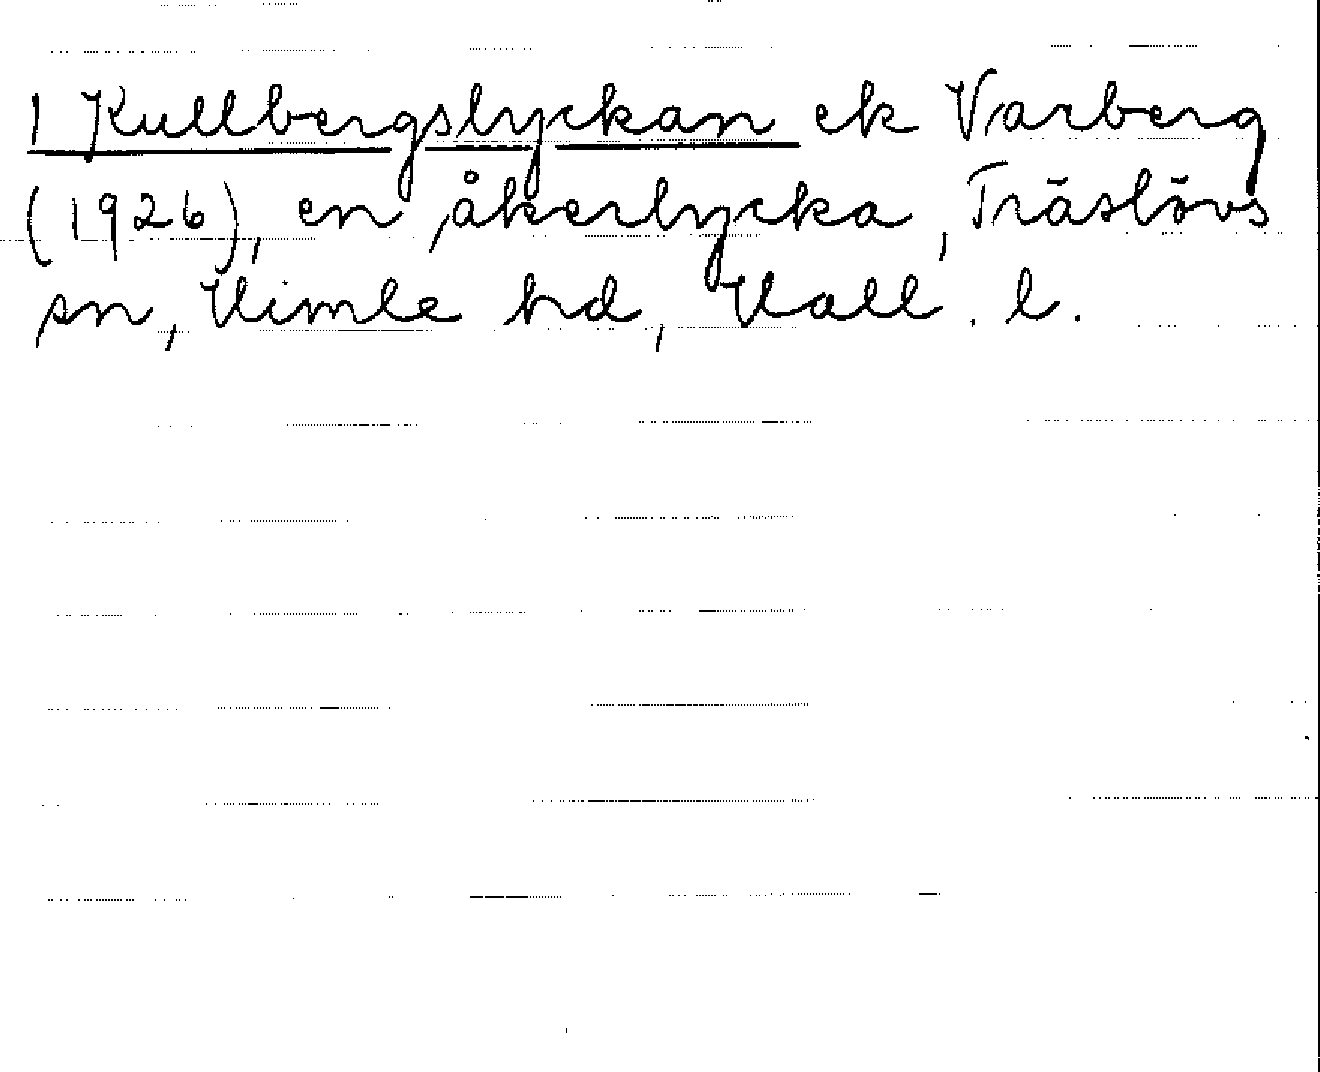 1 Kullbergslyckan ek Varberg
(1926), en åkerlycka, Träslövs
sn, Himle hd, Hall. l.